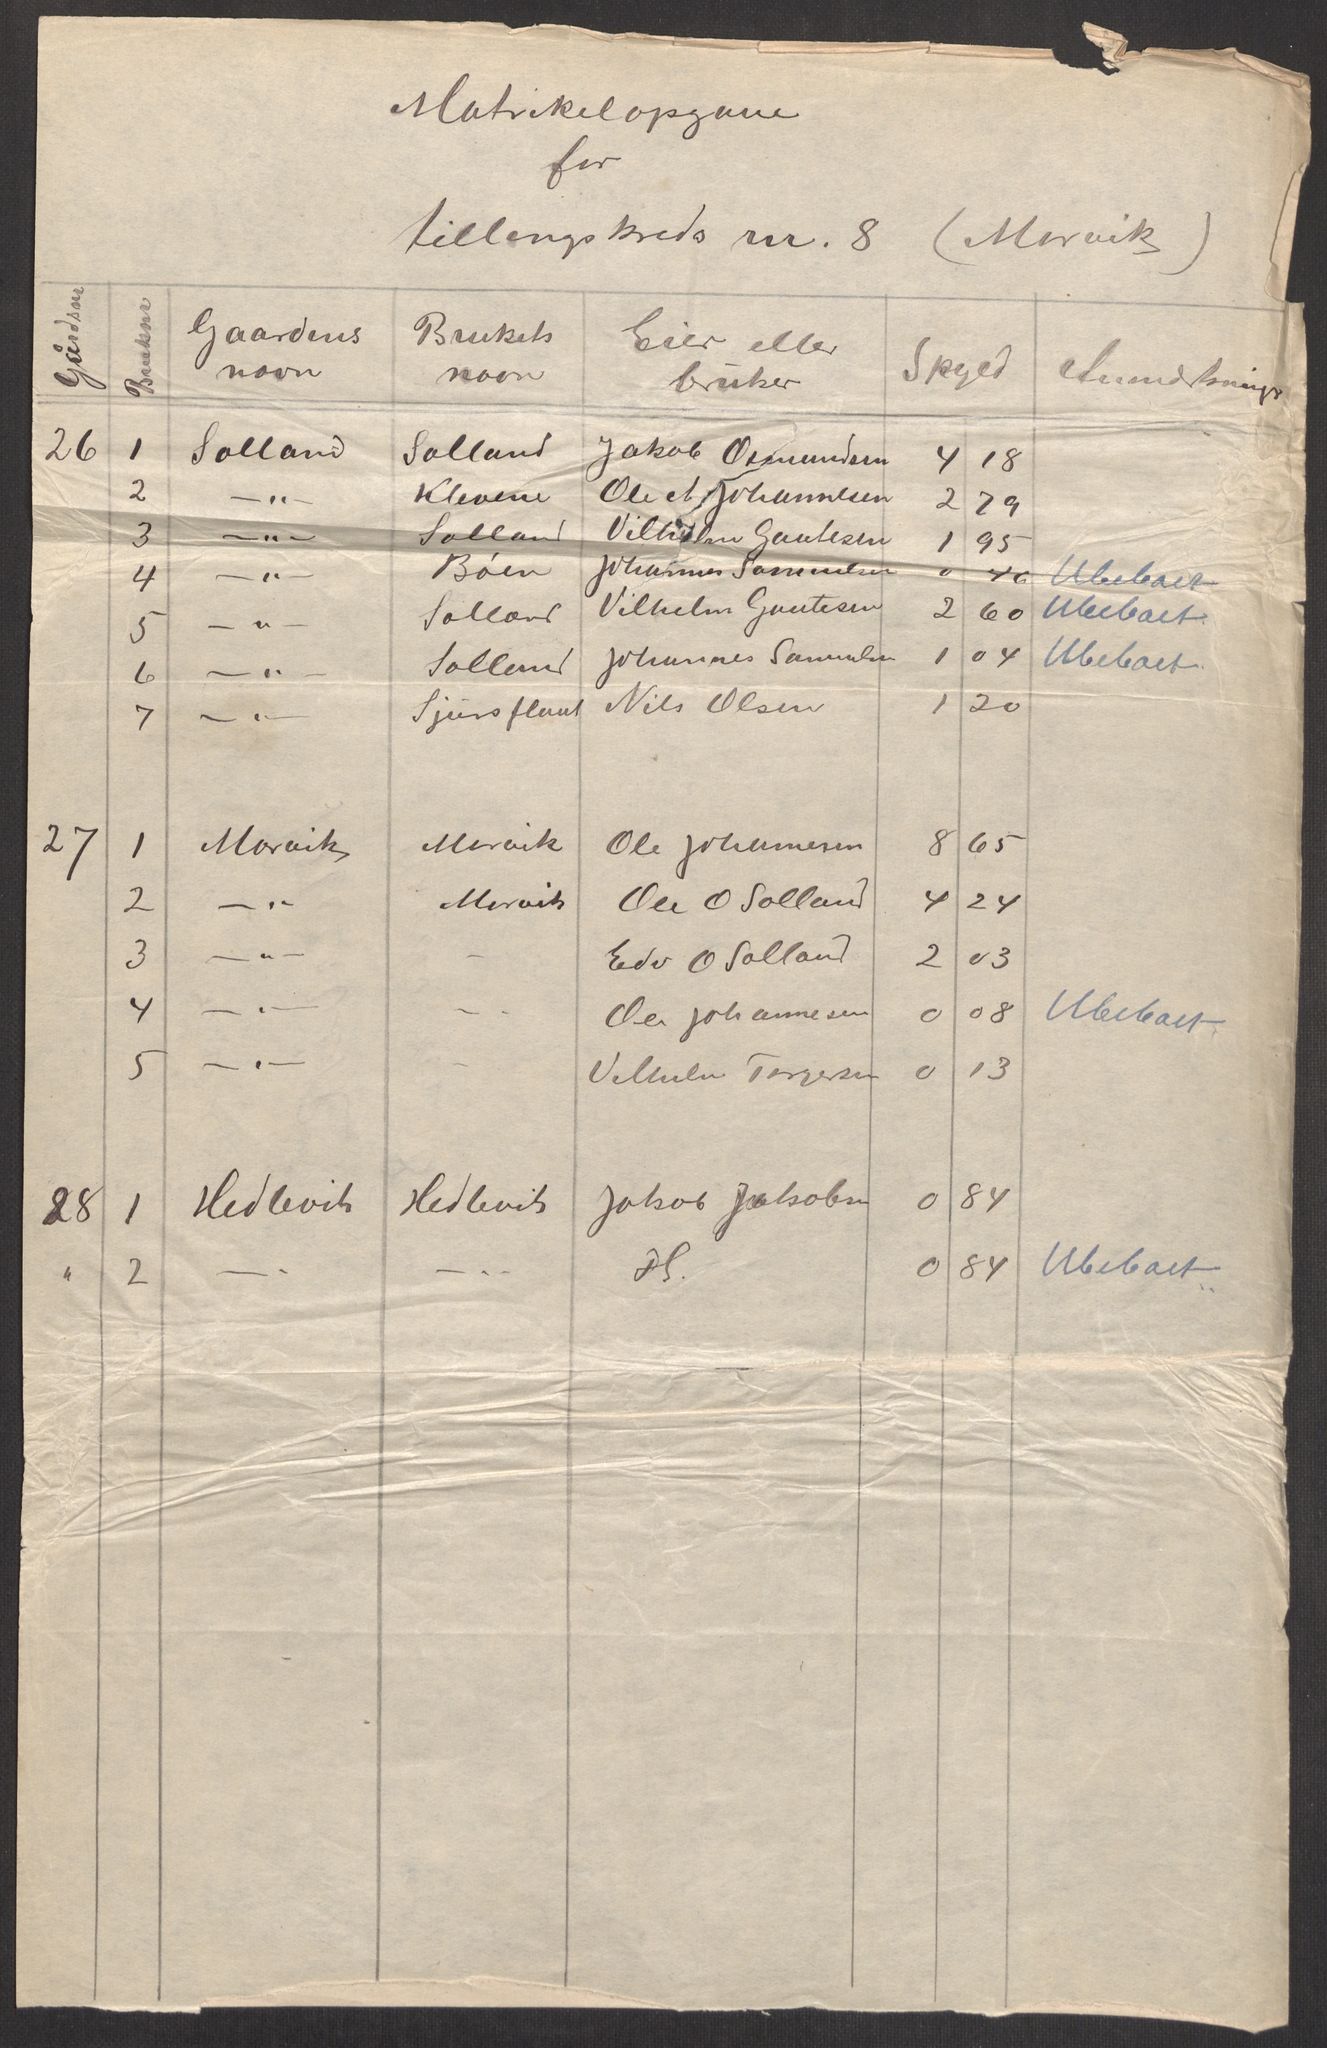 Matrikelopgave
for
tellengskreds nr. 8 (Morvik)
Gaardsnr Bruksnr Gaardens navn Brukets navn Eier eller bruker Skyld Anmerkninger
26 1 Solland Solland Jakob Osmundsen 4 18
2 —"— Klevene Ole A Johannesen 2 79
3 —"— Solland Vilhelm Gautesen 1 95
4 —"— Böen Johannes Samuelsn 0 46 Ubeboet
5 —"— Solland Vilhelm Gautesen 2 60 Ubeboet
6 —"— Solland Johannes Samuelsn 1 04 Ubeboet
7 —"— Sjursflaat Nils Olsen 1 20
27 1 Morvik Morvik Ole Johannesen 8 65
2 —"— Morvik Ole O Solland 4 24
3 —"— - Edv O Solland 2 03
4 —"— - - Ole Johannesen 0 08 Ubeboet
5 —"— - Vilhelm Torgersen 0 13
28 1 Hedlevik Hedlevik Jakob Jakobsn 0 84
" 2 —"— —"— 0 84 Ubeboet